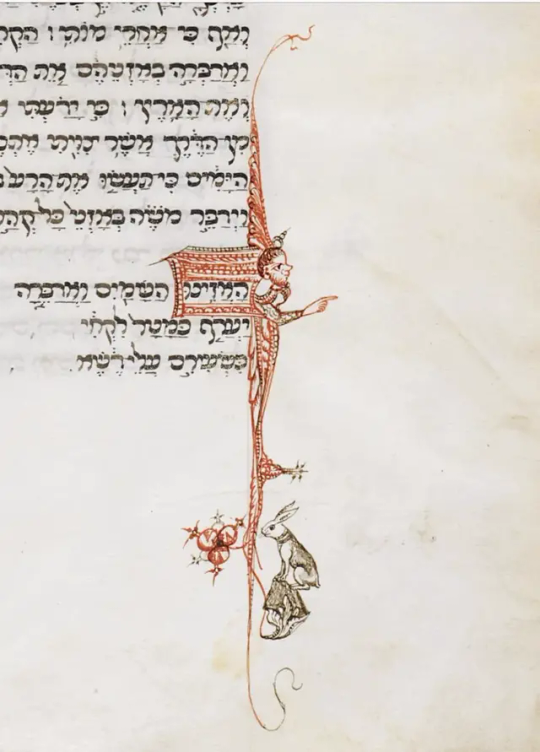 וְאַף כִּי אַחֲרֵי מוֹתִי׃
וַאֲדַבְּרָה בְאָזְנֵיהֶם אֵת
וְאֶת הָאָרֶץ׃ כִּי יָדַעְתִּי
מִן הַדֶּרֶךְ אֲשֶׁר צִוִּיתִי
הַיָּמִים כִּי תַעֲשׂוּ אֶת הָרַע
וַיְדַבֵּר מֹשֶׁה בְּאָזְנֵי כָּל קְהַל
הַאֲזִינוּ הַשָּׁמַיִם וַאֲדַבֵּרָה
יַעֲרֹף כַּמָּטָר לִקְחִי
כִּשְׂעִירִם עֲלֵי דֶשֶׁא